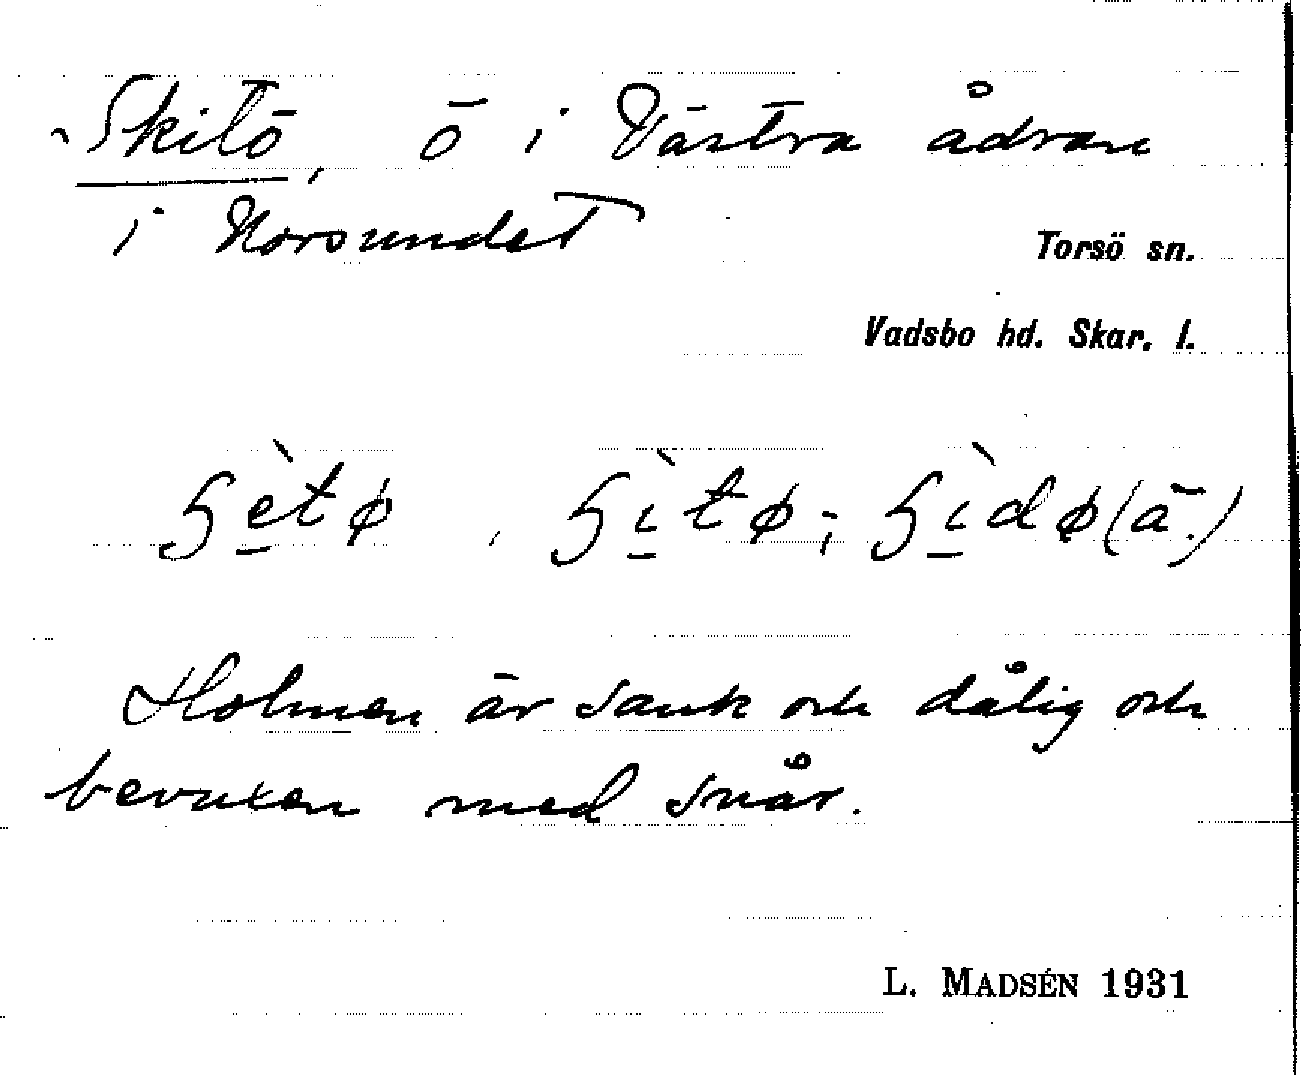 ~Skitö, ö i Västra ådran
i Norsundet
Torsö sn.
Vadsbo hd. Skar. l.
ɧètø, ɧìtø; ɧìdø (ä.)
Holmen är sank och dålig och
bevuxen med snår.
L. MADSÉN 1931